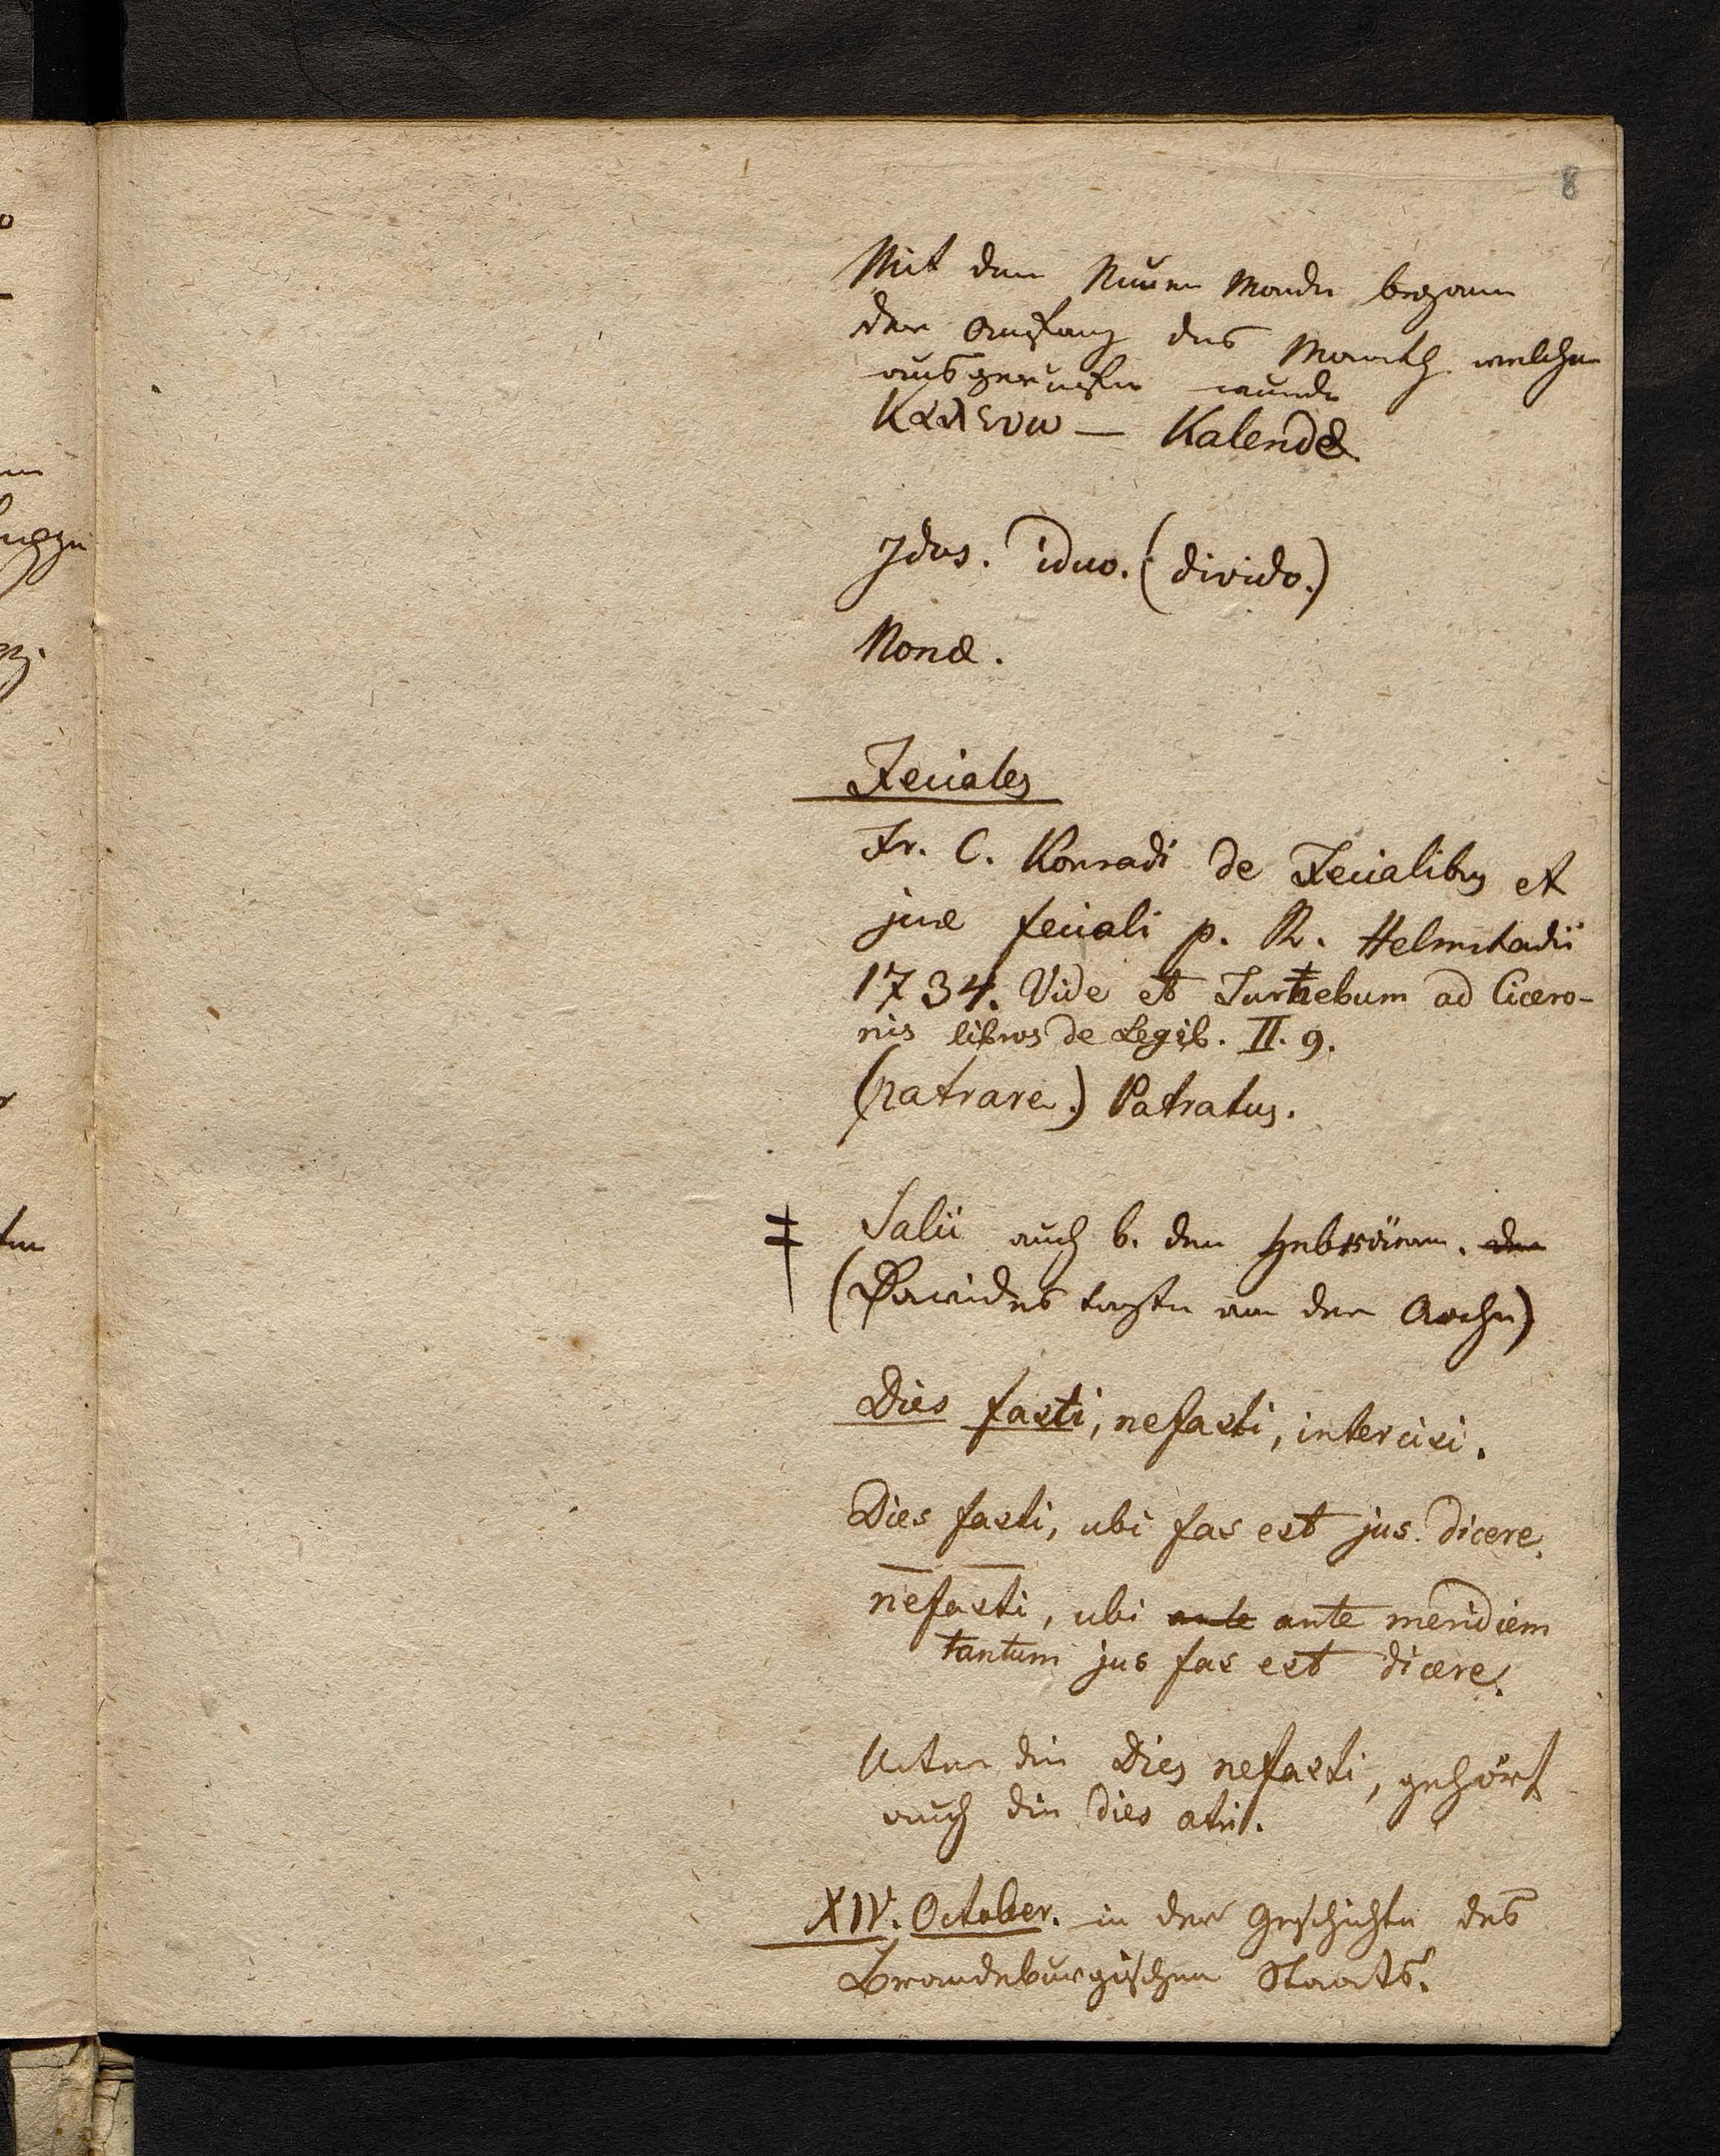 8
Mit dem Neuen Monde begann
der Anfang des Monaths welcher
ausgerufen wurde
Καλεουω — Kalendæ
Idus. iduo. (divido.)
Nonæ.
Feciales
Fr. C. Konradi de Fecialibus et
jure feciali p. R. Helmstadii
1734. Vide et Turnebum ad Cicero-
nis libros de Legib. II. 9.
(patrare.) Patratus.
‡ Salii auch b. den Hebräern. der
(Davides tanzte an der Arche)
Dies fasti, nefasti, intercisi.
Dies fasti, ubi fas est jus dicere.
nefasti, ubi ante ante meridiem
tantum jus fas est dicere.
Unter die Dies nefasti, gehört
auch die dies atri.
XIV. October. in der Geschichte des
Brandeburgischen Staats.